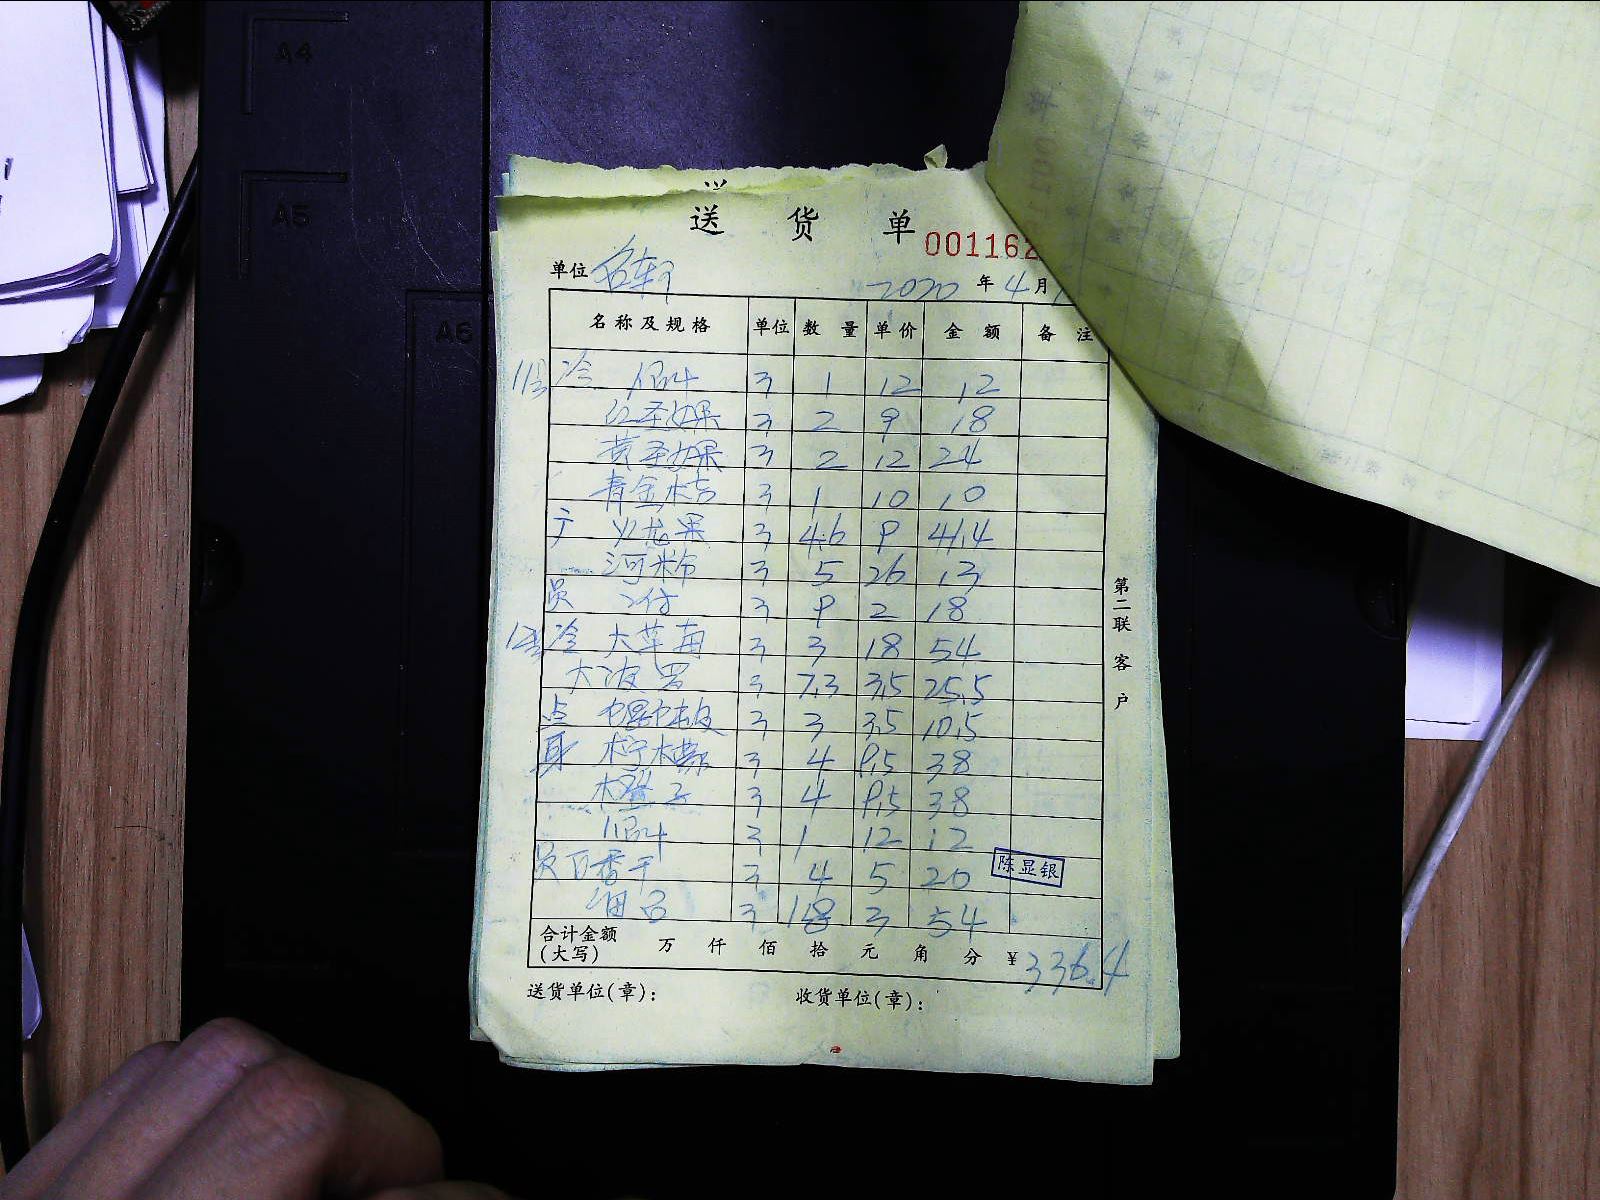 A4
A5
A6
送 货 单
001162
单位 名轩
2020 年 4 月
名称及规格 单位 数量 单价 金额 备注
11号 冷 3 1 12 12
红圣女果 3 2 9 18
黄圣女果 3 2 12 24
青金桔 3 1 10 10
火龙果 3 4.6 9 41.4
3 5 26 13
员 3 9 2 18
12号 冷 大草莓 3 3 18 54
大波罗 3 7.3 3.5 25.5
点 3 3 3.5 10.5
身 柠檬 3 4 9.5 38
橙子 3 4 9.5 38
3 1 12 12
员 百香干 3 4 5 20
3 18 3 54
陈显银
合计金额
(大写) 万 仟 佰 拾 元 角 分 ¥ 336.4
送货单位(章): 收货单位(章):
第二联 客户